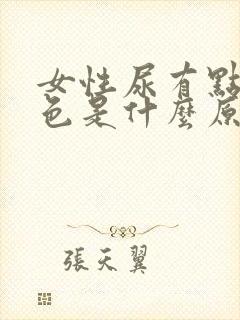 女性尿有點
色是什麼原
張天翼